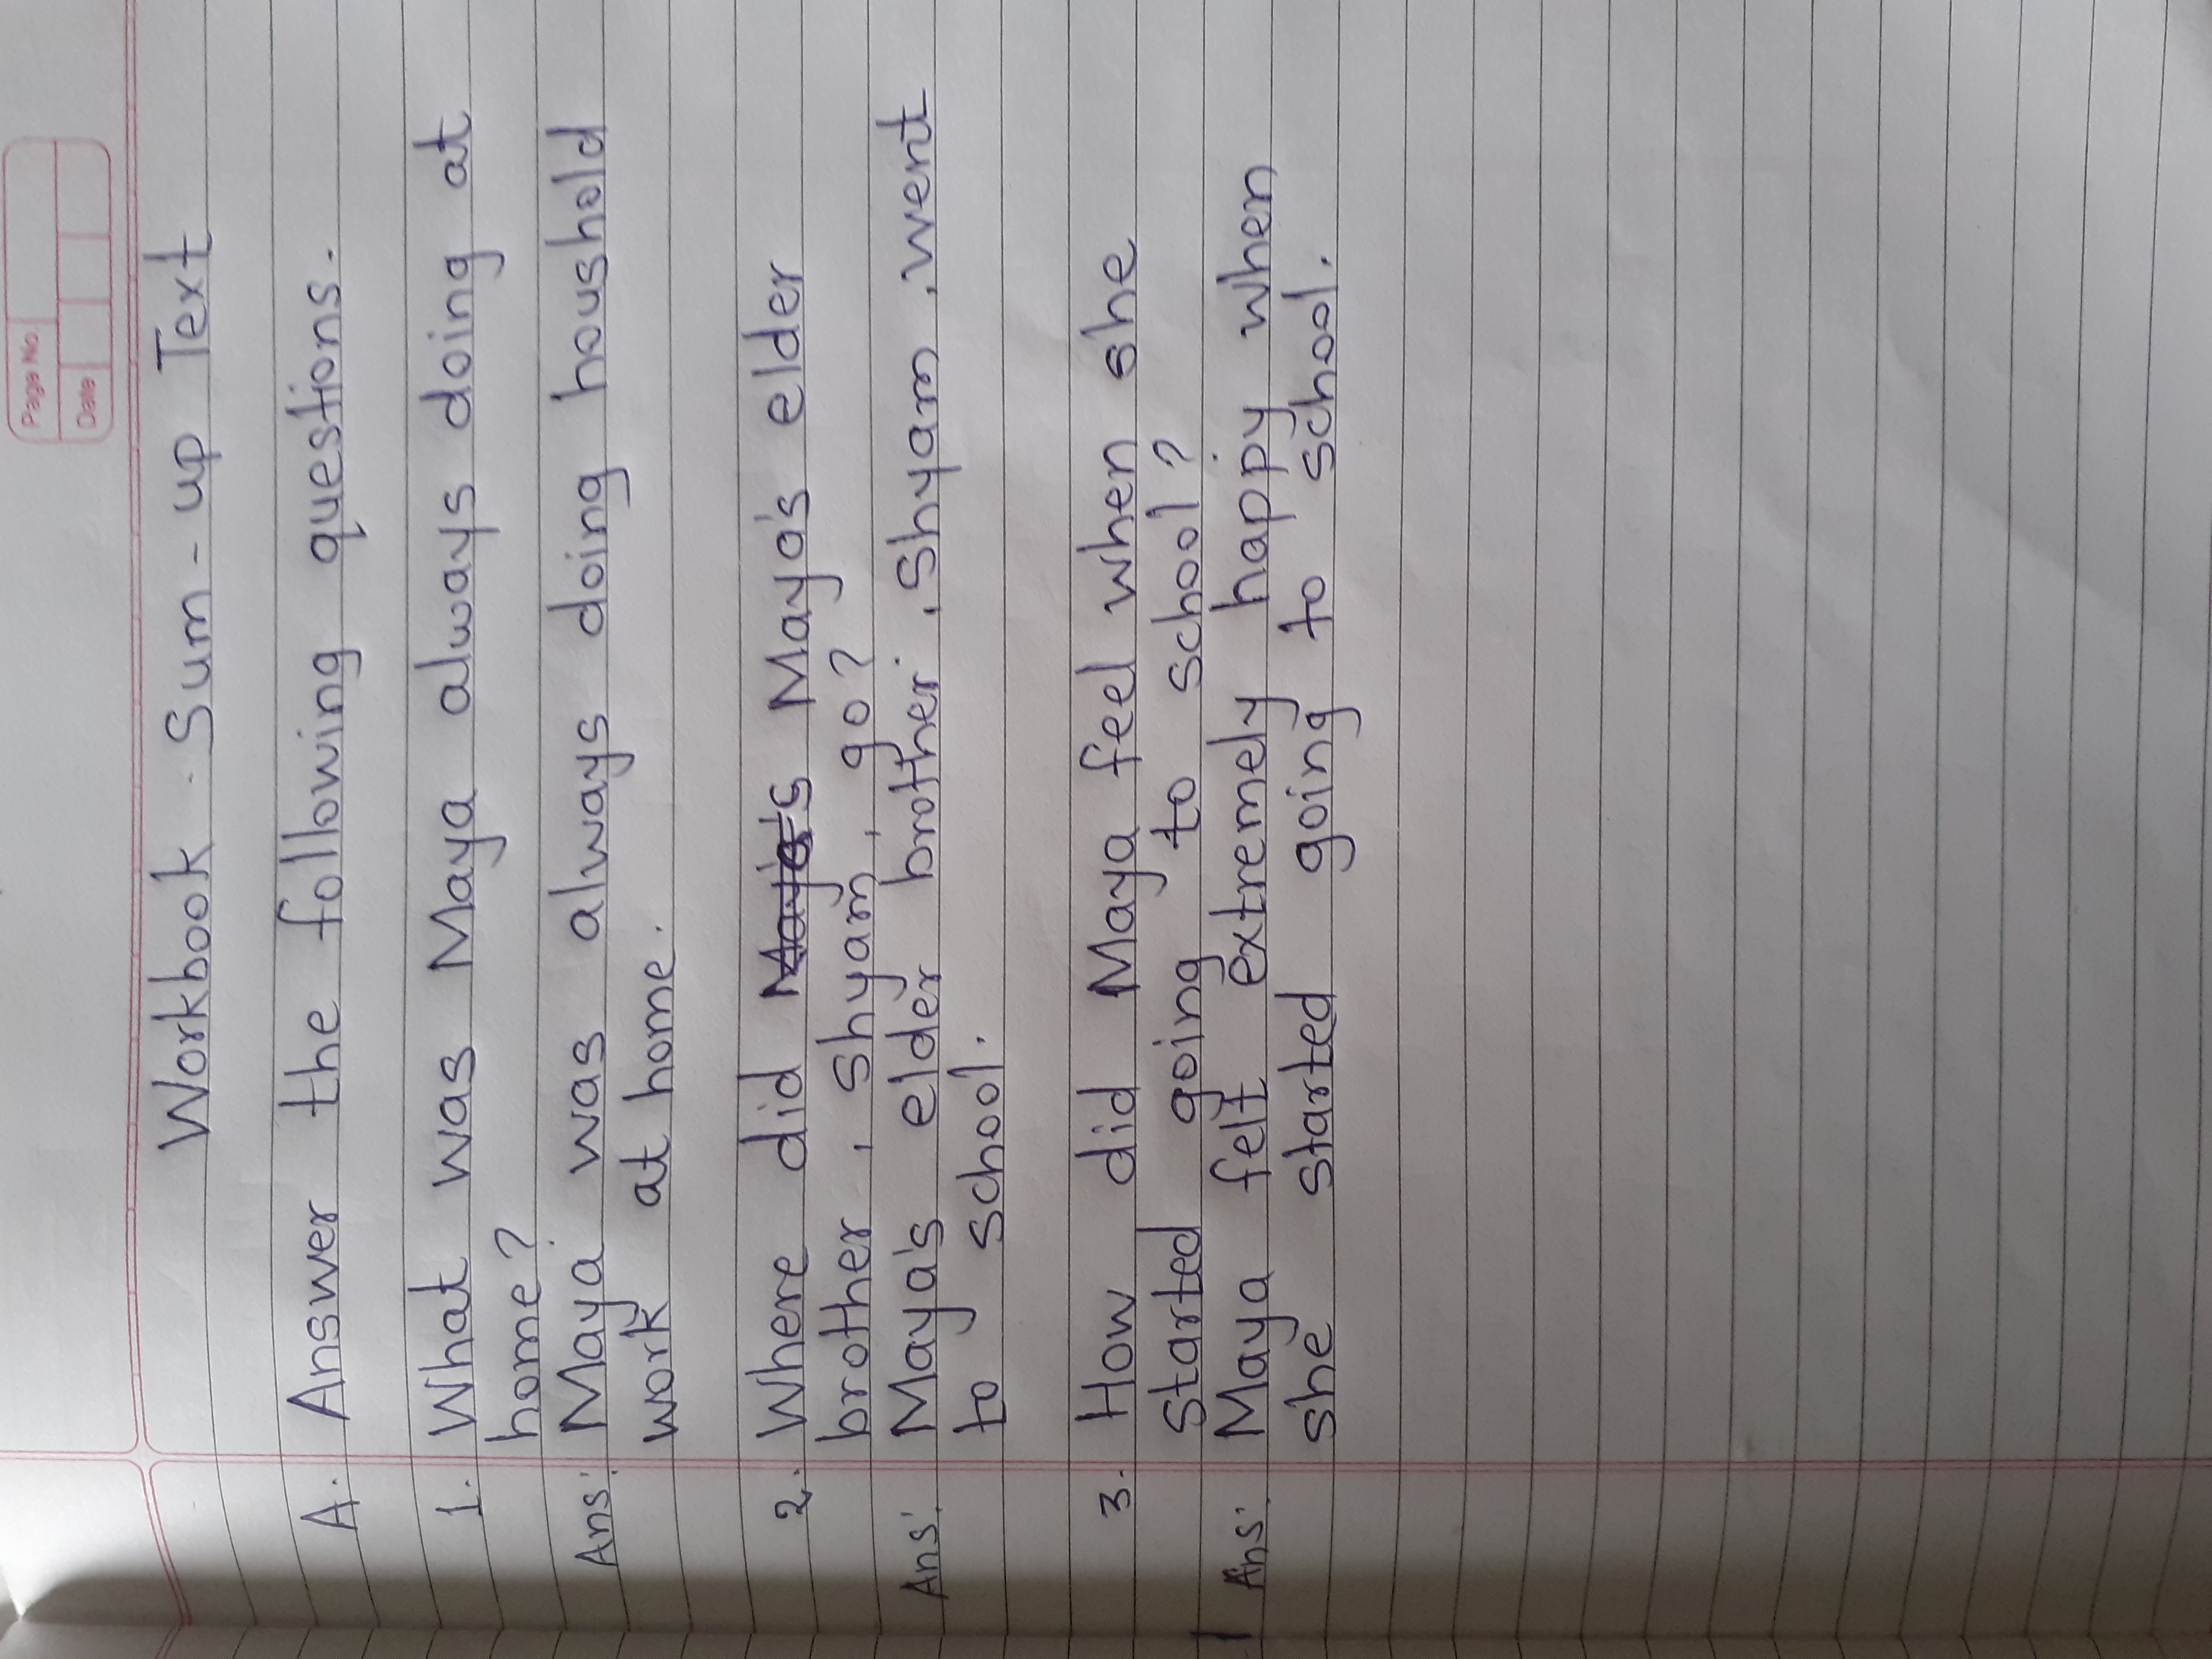 Page No.
Date
Workbook - Sum-up Text
A. Answer the following questions.
1. What was Maya always doing at
home?
Ans: Maya was always doing houshold
work at home.
2. Where did Maya's elder
brother, Shyam, go?
Ans: Maya's elder brother, Shyam, went
to school.
3. How did Maya feel when she
started going to school?
Ans: Maya felt extremely happy when
she started going to school.